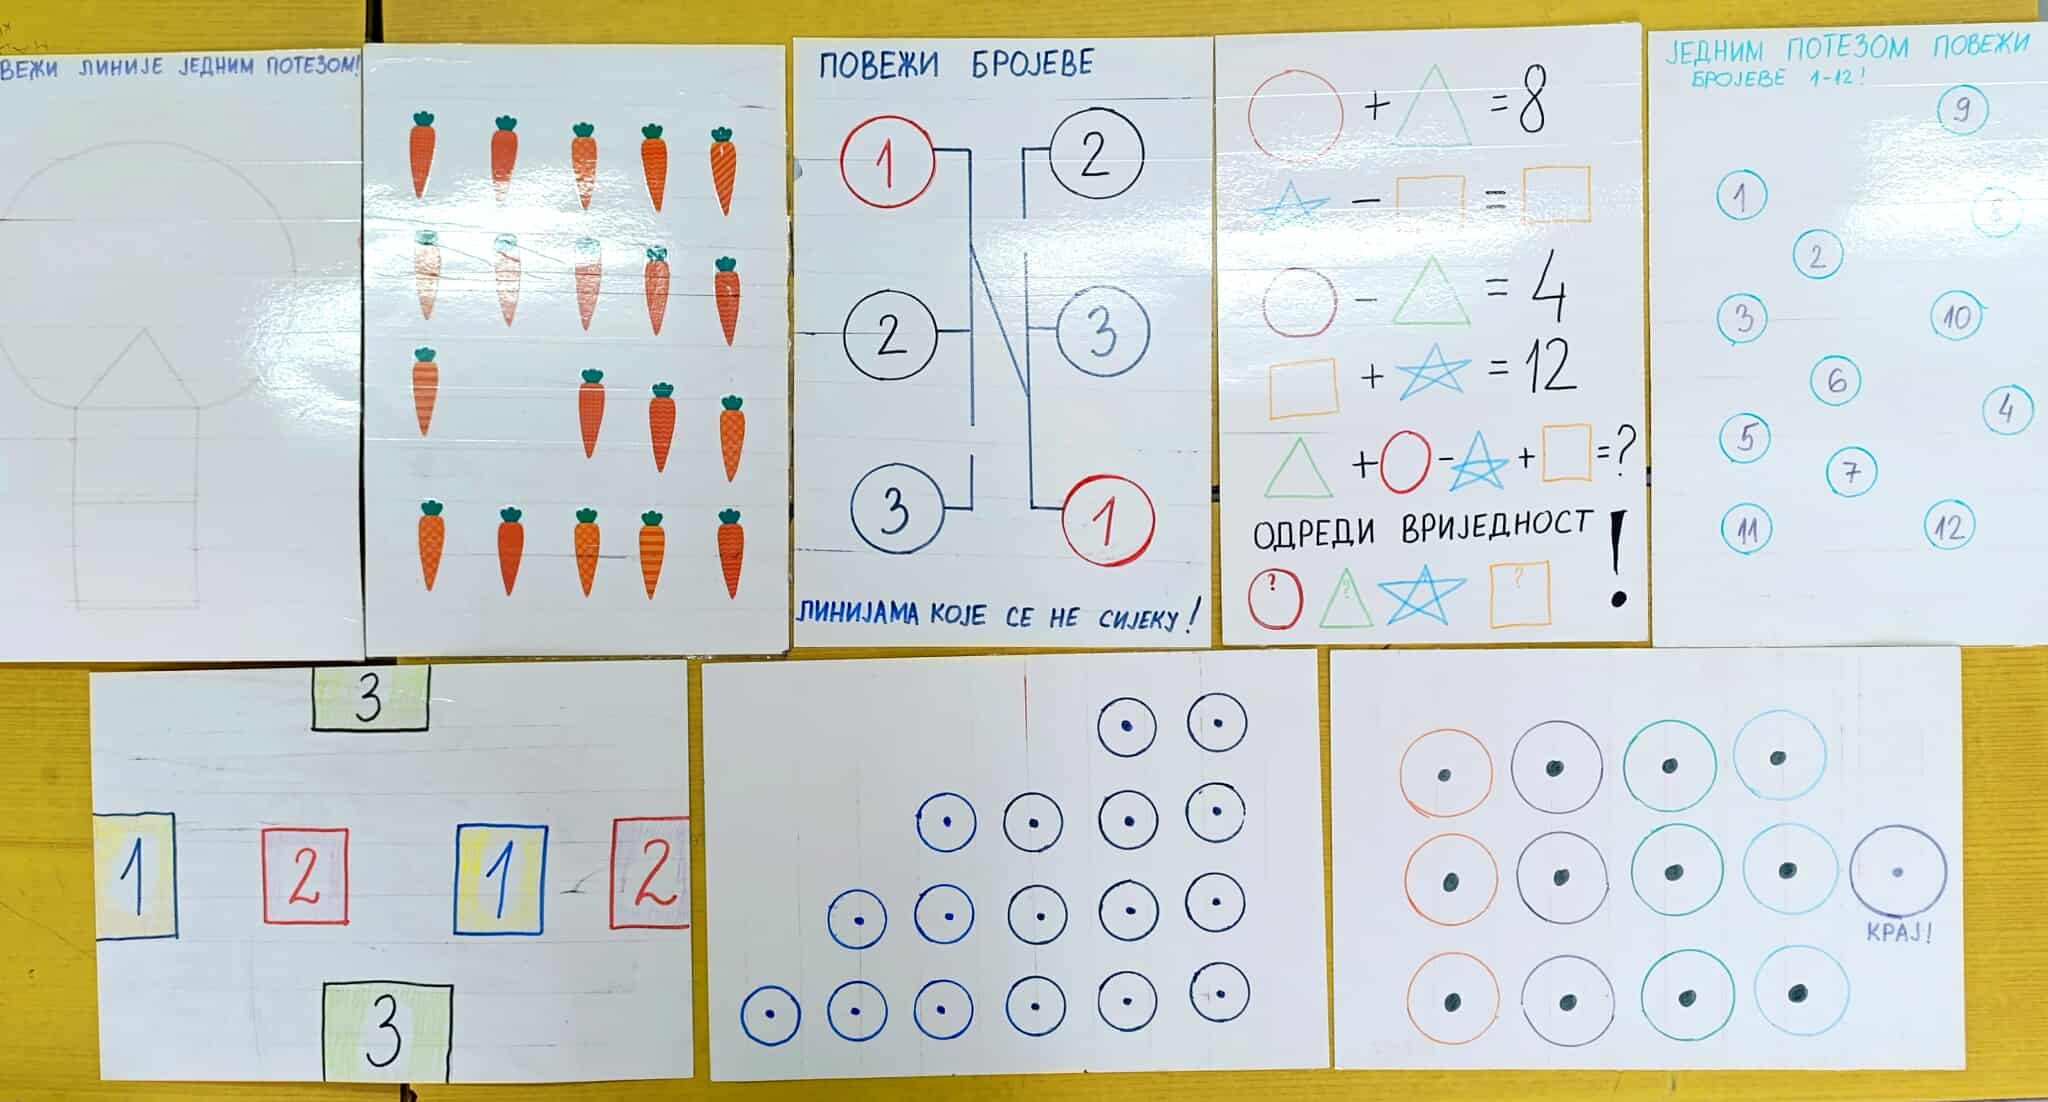 ВЕЖИ ЛИНИЈЕ ЈЕДНИМ ПОТЕЗОМ!
ПОВЕЖИ БРОЈЕВЕ
1
2
2
3
3
1
ЛИНИЈАМА КОЈЕ СЕ НЕ СИЈЕКУ!
+ = 8
- =
- = 4
+ = 12
+ - + = ?
ОДРЕДИ ВРИЈЕДНОСТ !
? ? ?
ЈЕДНИМ ПОТЕЗОМ ПОВЕЖИ
БРОЈЕВЕ 1-12!
9
1
8
2
3
10
6
4
5
7
11
12
3
1 2 1 2
3
КРАЈ!